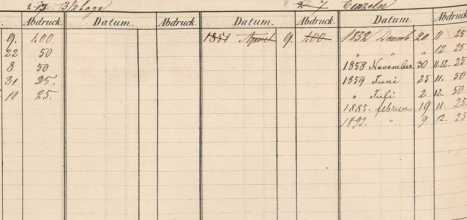 Abdruck. Datum. Abdruck. Datum. Abdruck. Datum. Abdruck
9. 400 1851 April 9. 400 1852 Decemb 20 11 25
22 50 " " " 12 25
8 50 1858 November 30 11.12. 25
31 25. 1859 Juni 25 11. 50
10 25. " Juli 2 12. 50
1885. februar 19 11. 25
1892. " 9 12. 25